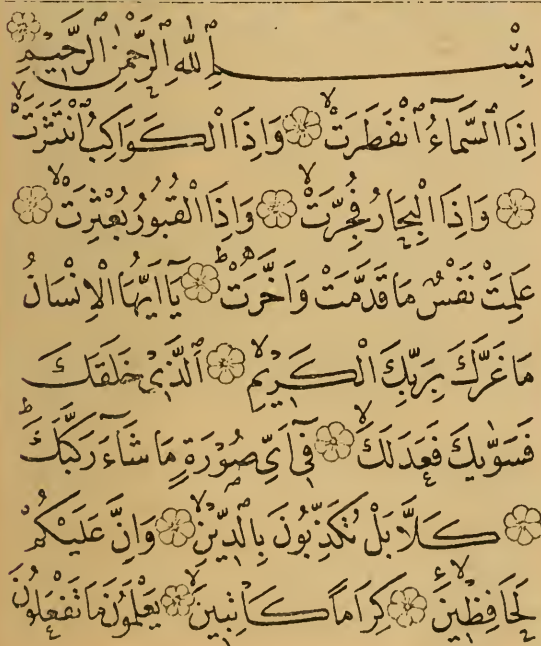 بِسْمِ اللّٰهِ الرَّحْمٰنِ الرَّحٖيمِ
اِذَا السَّمَٓاءُ انْفَطَرَتْۙ وَاِذَا الْكَوَاكِبُ انْتَثَرَتْۙ
وَاِذَا الْبِحَارُ فُجِّرَتْۙ وَاِذَا الْقُبُورُ بُعْثِرَتْۙ
عَلِمَتْ نَفْسٌ مَا قَدَّمَتْ وَاَخَّرَتْۜ يَٓا اَيُّهَا الْاِنْسَانُ
مَا غَرَّكَ بِرَبِّكَ الْكَرٖيمِۙ اَلَّذٖي خَلَقَكَ
فَسَوّٰيكَ فَعَدَلَكَۙ فٖٓي اَيِّ صُورَةٍ مَا شَٓاءَ رَكَّبَكَۜ
كَلَّا بَلْ تُكَذِّبُونَ بِالدّٖينِۙ وَاِنَّ عَلَيْكُمْ
لَحَافِظٖينَۙ كِرَاماً كَاتِبٖينَۙ يَعْلَمُونَ مَا تَفْعَلُونَ